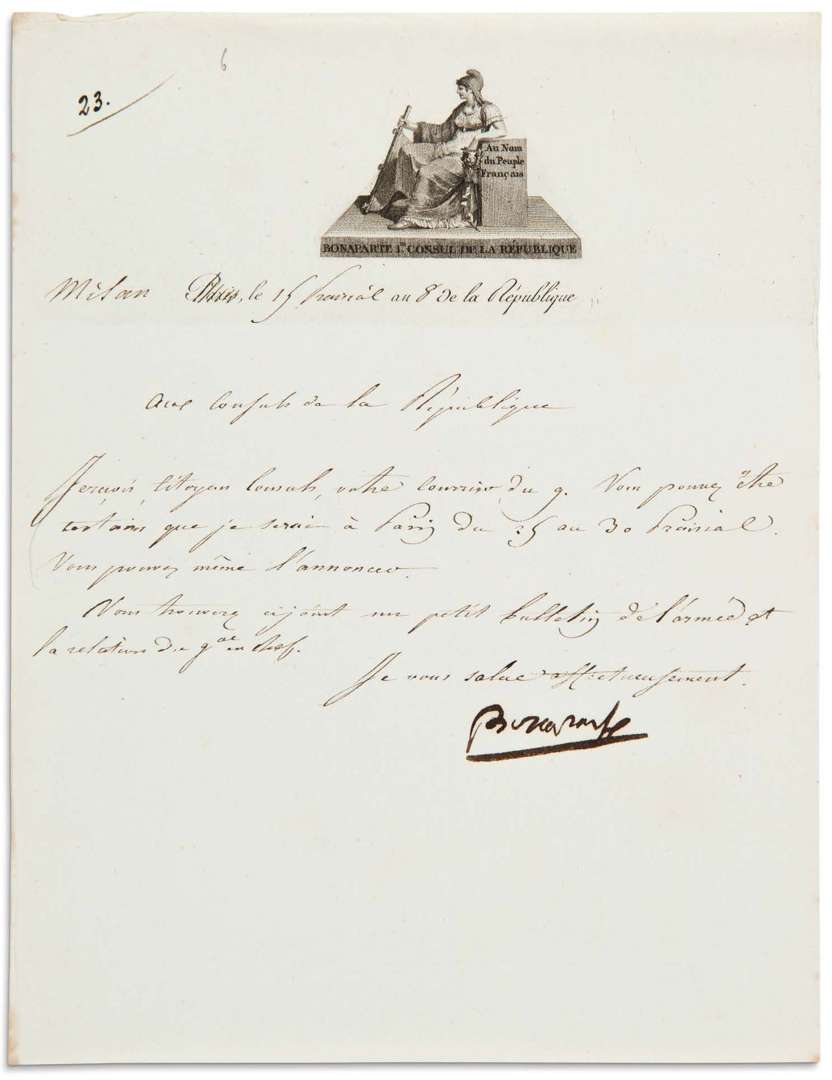 6
23.
Au Nom
du Peuple
Français
BONAPARTE 1.er CONSUL DE LA RÉPUBLIQUE
Milan Paris, le 15 Prairial an 8 de la République
Aux Consuls de la République
Je reçois, Citoyens Consuls, votre Courrier du 9. Vous pouvez être
certains que je serai à Paris du 25 au 30 Prairial.
Vous pouvez même l'annoncer.
Vous trouverez cijoint un petit bulletin de l'armée et
la relation du gal en chef.
Je vous salue affectueusement.
Bonaparte